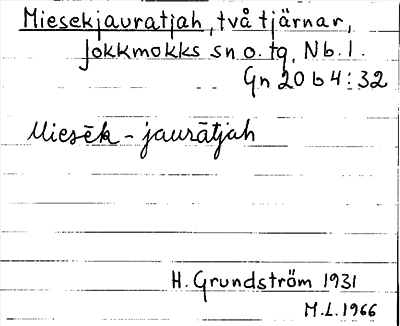 Miesekjauratjah, två tjärnar,
Jokkmokks sn o. tg, Nb. l.
Gn 20 b 4:32
Miesēk - jaurātjah
H. Grundström 1931
M.L. 1966